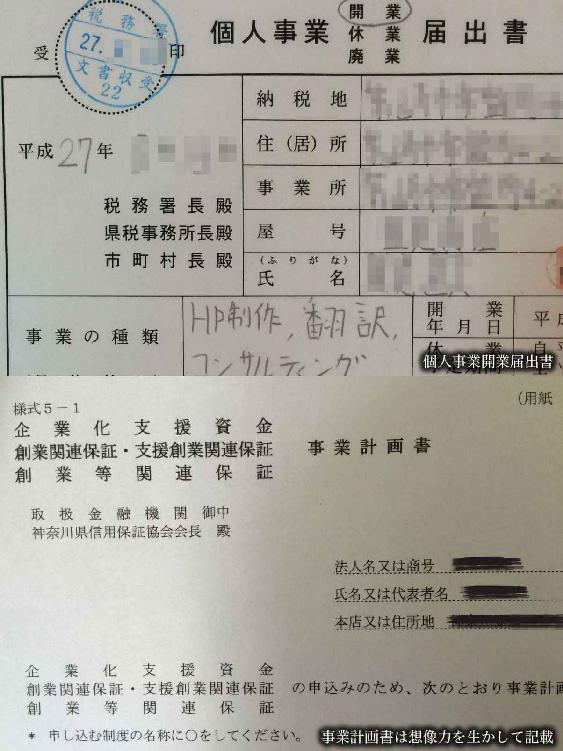 税務署
27.
文書収受
22
受 印
個人事業 開業 届出書
休業
廃業
平成27年
税務署長殿
県税事務所長殿
市町村長殿
納税地
住(居)所
事業所
屋号
(ふりがな)
氏名
事業の種類
HP制作，翻訳，
コンサルティング
開業
年月日
平成
個人事業開業届出書
様式5－1
(用紙
企業化支援資金
創業関連保証・支援創業関連保証
創業等関連保証
事業計画書
取扱金融機関御中
神奈川県信用保証協会会長 殿
法人名又は商号
氏名又は代表者名
本店又は住所地
企業化支援資金
創業関連保証・支援創業関連保証
創業等関連保証
の申込みのため、次のとおり事業計画
* 申し込む制度の名称に○をしてください。
事業計画書は想像力を生かして記載